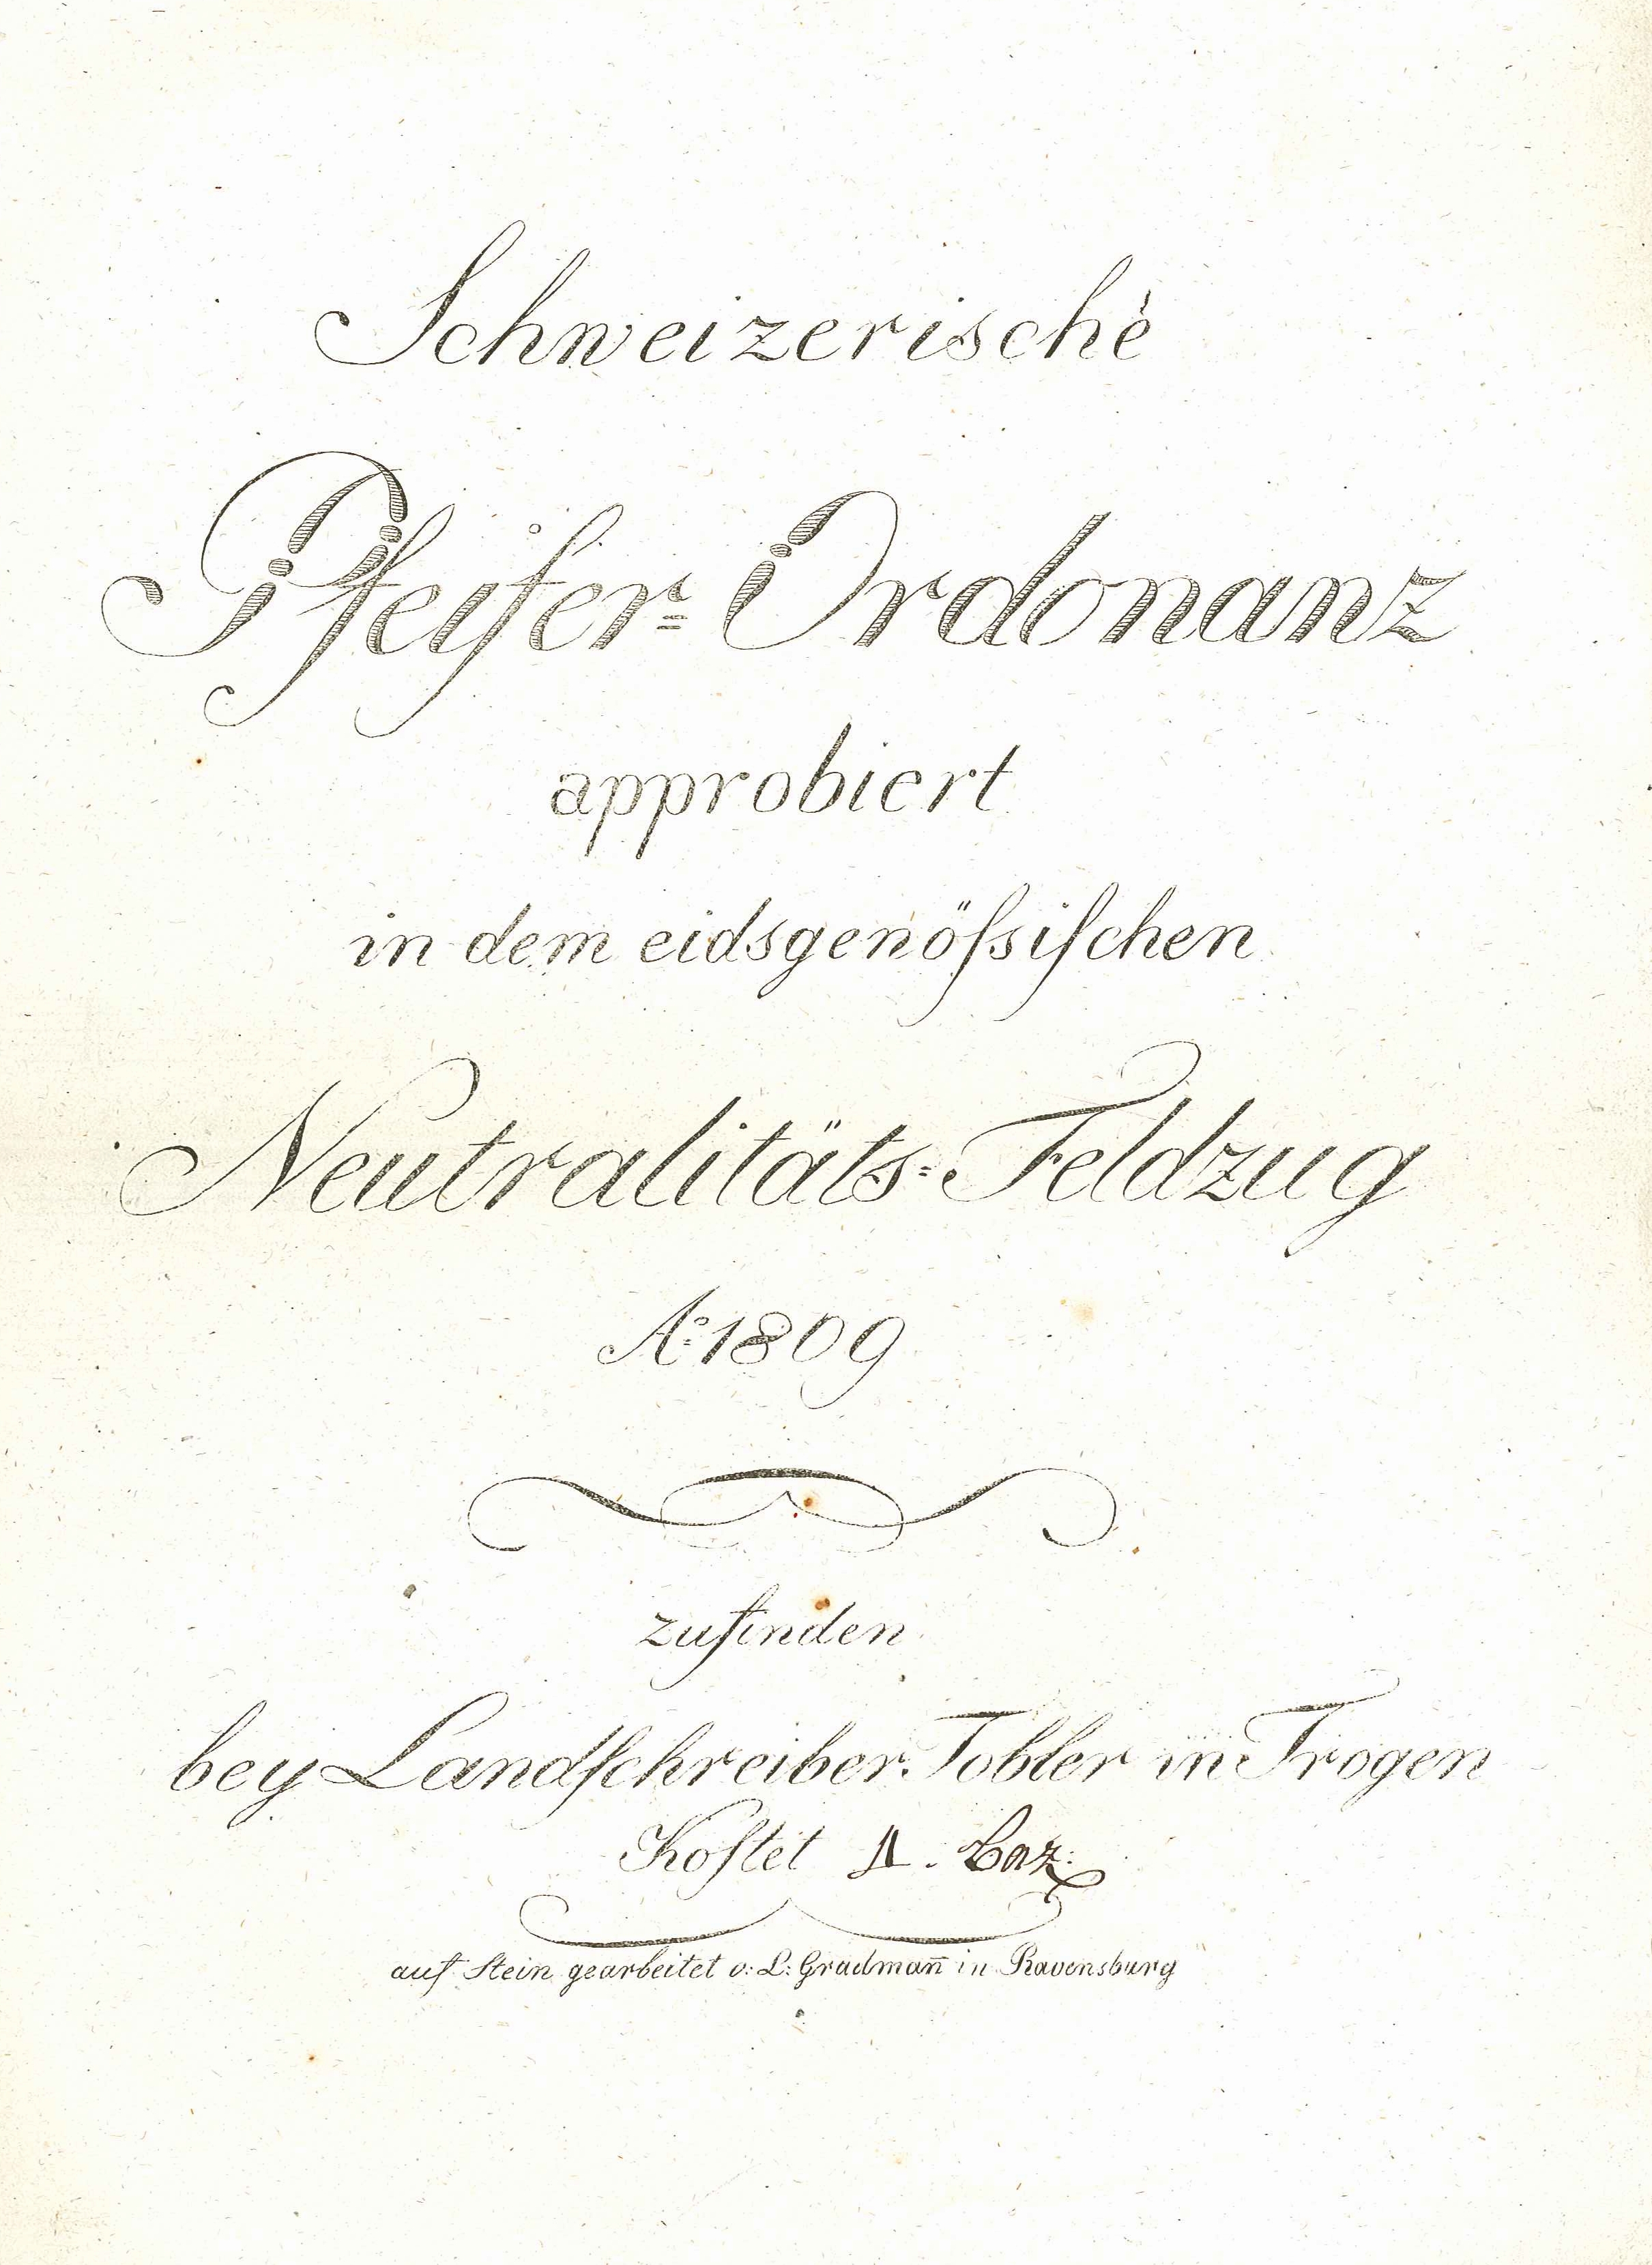 Schweizerische
Pfeifer= Ordonanz
approbiert
in dem eidsgenöſsiſchen
Neutralitäts=Feldzug
Aº 1809
zufinden
bey Landſchreiber Tobler in Trogen
Koſtet 1. baz:
auf Stein gearbeitet v: L: Gradmañ in Ravensburg